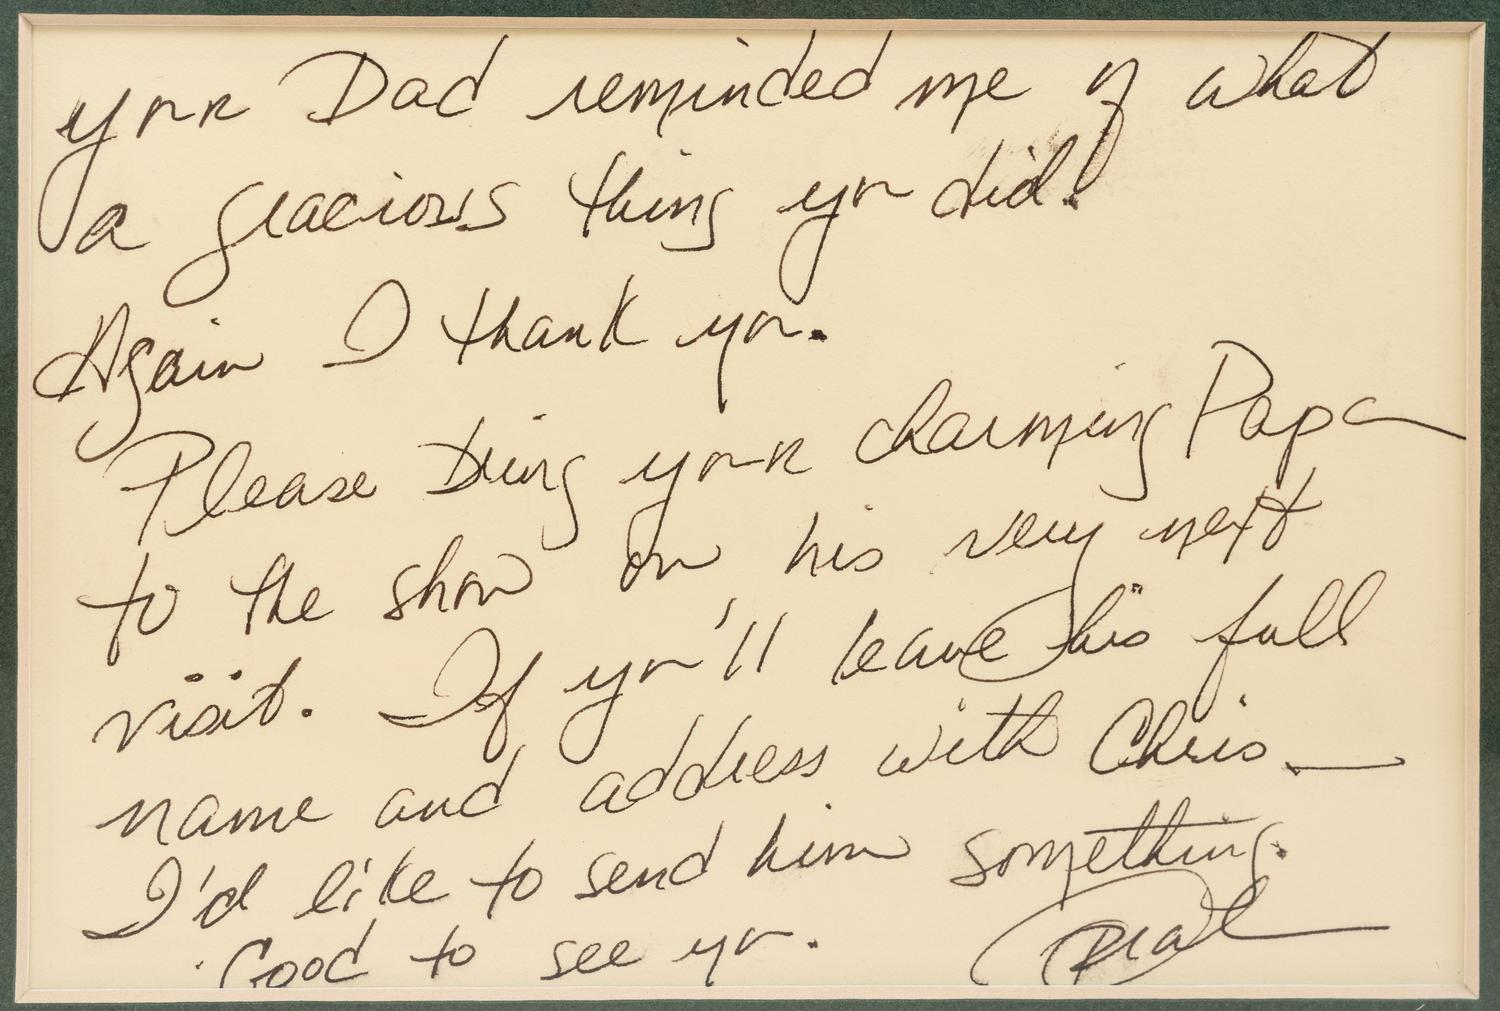 your Dad reminded me of what
a gracious thing you did!
Again I thank you.
Please bring your charming Papa
to the show on his very next
visit. If you'll leave his full
name and address with Chris —
I'd like to send him something.
Good to see you.